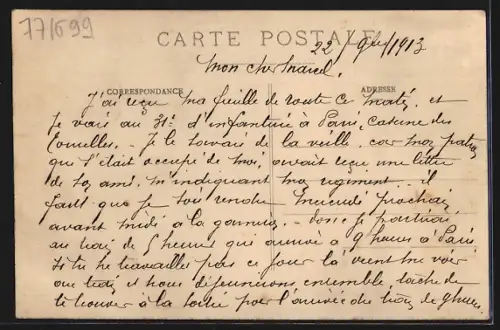 771699
CARTE POSTALE
22 9bre 1913
Mon cher Marcel,
CORRESPONDANCE
ADRESSE
J'ai reçu ma feuille de route ce matin et
je vais au 31e d'infanterie à Paris, caserne des
Tourelles. - Je le savais de la veille car mon patron
qui s'était occupé de moi, avait reçu une lettre
de son ami m'indiquant mon régiment. il
faut que je sois rendu mercredi prochain
avant midi à la - donc je partirai
au train de 5 heures qui arrive à 9 heures à Paris
si tu ne travailles pas ce jour là vient me voir
au train et nous déjeunerons ensemble, tâche de
te trouver à la sortie pour l'arrivée du train de 9 heures